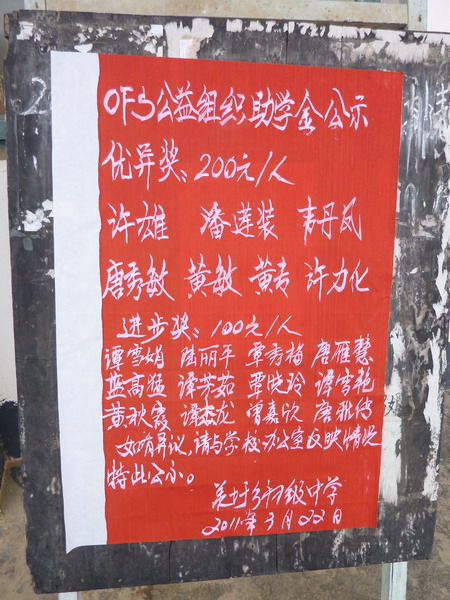 OFS公益组织助学金公示
优异奖：200元/人
许雄 潘莲装 韦丹凤
唐秀敏 黄敏 黄专 许力化
进步奖：100元/人
谭雪娟 陆丽平 覃秀梅 唐雁慧
蓝高猛 谭芳茹 覃晓玲 谭雪艳
黄秋霞 谭杰龙 曾嘉欣
如有异议，请与学校办公室反映情况
特此公示。
初级中学
2011年3月22日